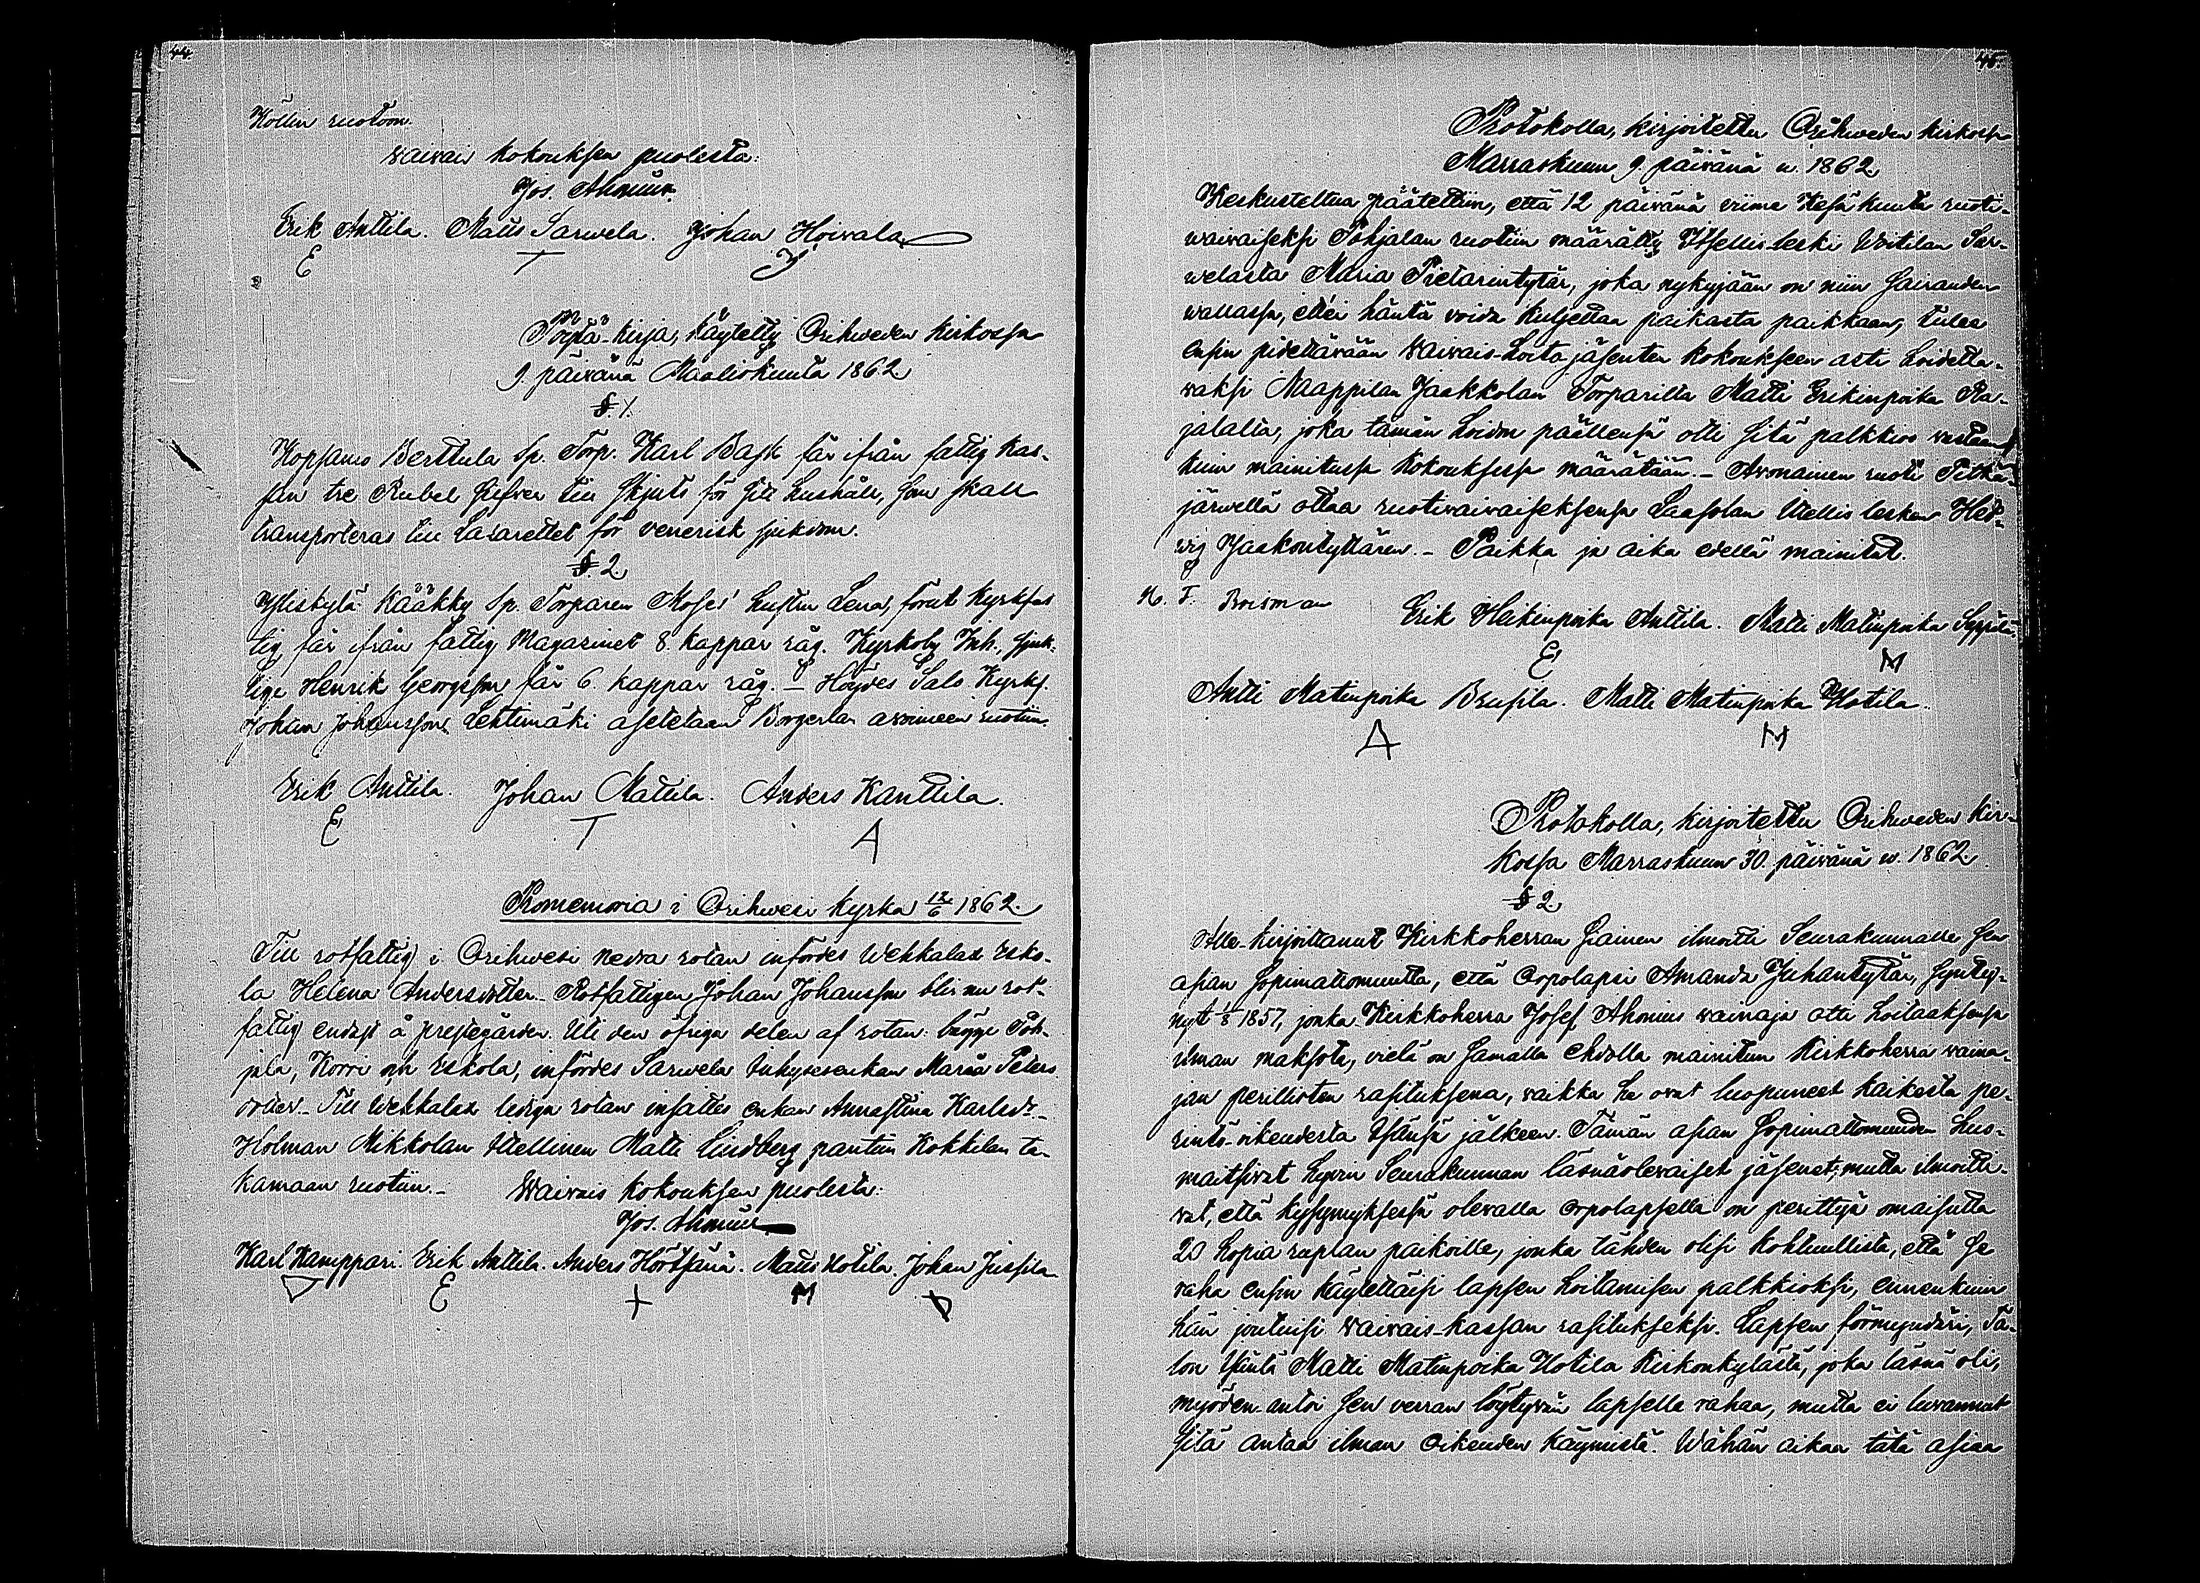 44.
Köllin ruotoon.
waiwais kokouksen puolesta:
Jos. Ahonius.
Erik Anttila. Matts Sarwela. Johan Hoivala
E T H
Pöytä-kirja, käytetty Orihweden kirkossa
9. päivänä Maaliskuuta 1862
§. 1.
Hopsamo Berttula Sp. Torp. Karl Bask får ifrån fattig kas-
san tre Rubel Silfver till Skjuts för sitt hushåll, som skall
transporteras till Lazarettet för venerisk sjukdom.
§. 2.
Yliskylä Kääkky Sp. Torparen Moses' hustru Lena, förut Kyrkfat
tig får ifrån fattig Magazinet 8. kappar råg. Kyrkoby Inh., sjuk-
lige Henrik Georgsson får 6. kappar råg. – Höydes Salo Kyrkf.
Johan Johansson Lehtimäki asetetaan Borgerlan avoimeen ruotiin.
Erik Anttila. Johan Mattila. Anders Kanttila.
E T A
Promemoria i Orihwesi kyrka 12/6 1862.
Till rotfattig i Orihwesi nedra rotan infördes Wehkalax Esko-
la Helena Andersdotter. Rotfattigen Johan Johansson blir nu rot-
fattig endast å prestegården. Uti den öfriga delen af rotan: bägge Poh-
jala, Korri och Eskola, infördes Sarwela Inhysesenkan Maria Peters
dotter. Till Wehkalax lediga rotan insattes enkan Annastina Karlsdr.
Holman Mikkolan Itsellinen Matti Lindberg pantiin Kokkilan ta-
kamaan ruotiin.– Waivais kokouksen puolesta:
Jos. Ahonius
Karl Kamppari. Erik Anttila. Anders Hörtsänä. Matts Hotila. Johan Jussila
E + M
45.
Protokolla, kirjoitettu Orihweden kirkossa
Marraskuun 9. päivänä w. 1862.
Keskusteltua päätettiin, että 12 päivänä viime Kesäkuuta ruoti-
waivaiseksi Pohjalan ruotiin määrätty Itsellis-leski Woitilan Sar-
welasta Maria Pietarintytär, joka nykyjään on niin sairauden
wallassa, ettei häntä voida kuljettaa paikasta paikkaan, tulee
ensin pidettävään Waivais-hoito jäsenten kokoukseen asti hoidetta-
vaksi Naappilan Jaakkolan Torparilta Matti Erikinpoika Ra-
jalalta, joka tämän hoidon päällensä otti sitä palkkiota vastaan
kuin mainitussa kokouksessa määrätään.– Avonainen ruoti Pitkä-
järwellä ottaa ruotivaivaiseksensa Laasolan Itsellis lesken Hed-
vig Jaakontyttären.– Paikka ja aika edellä mainitut.
H. F. Broisman
Erik Heikinpoika Anttila. Matti Matinpoika Syppilä.
E M
Antti Matinpoika Brusila. Matti Matinpoika Hotila.
A M
Protokolla, kirjoitettu Orihweden kir-
kossa Marraskuun 30. päivänä w. 1862.
§ 2.
Alle-kirjoittanut Kirkkoherran siainen ilmoitti Seurakunnalle sen
asian sopimattomuutta, että orpolapsi Amanda Juhantytär, synty-
nyt 1/8 1857, jonka Kirkkoherra Josef Ahonius vainaja otti hoitaaksensa
ilman maksota, vielä on samalla ehdolla mainitun Kirkkoherra vaina-
jan perillisten rasituksena, vaikka he ovat luopuneet kaikesta pe-
rintö-oikeudesta Isänsä jälkeen. Tämän asian sopimattomuuden huo-
maitsivat hyvin Seurakunnan läsnäolevaiset jäsenet; mutta ilmoitti-
vat, että kysymyksessä olevalla orpolapsella on perittyjä omaisutta
20 hopia ruplan paikoille, jonka tähden olisi kohtuullista, että se
raha ensin käytettäisi lapsen hoitamisen palkkioksi, ennenkuin
hän joutuisi waivais-kassan rasitukseksi. Lapsen förmyndäri, Ta-
lon Isäntä Matti Matinpoika Hotila Kirkonkylästä, joka läsnä oli,
myöden antoi sen verran löytyvän lapsella rahaa, mutta ei luvannut
sitä antaa ilman oikeuden käymistä. Wähän aikaa tätä asiaa